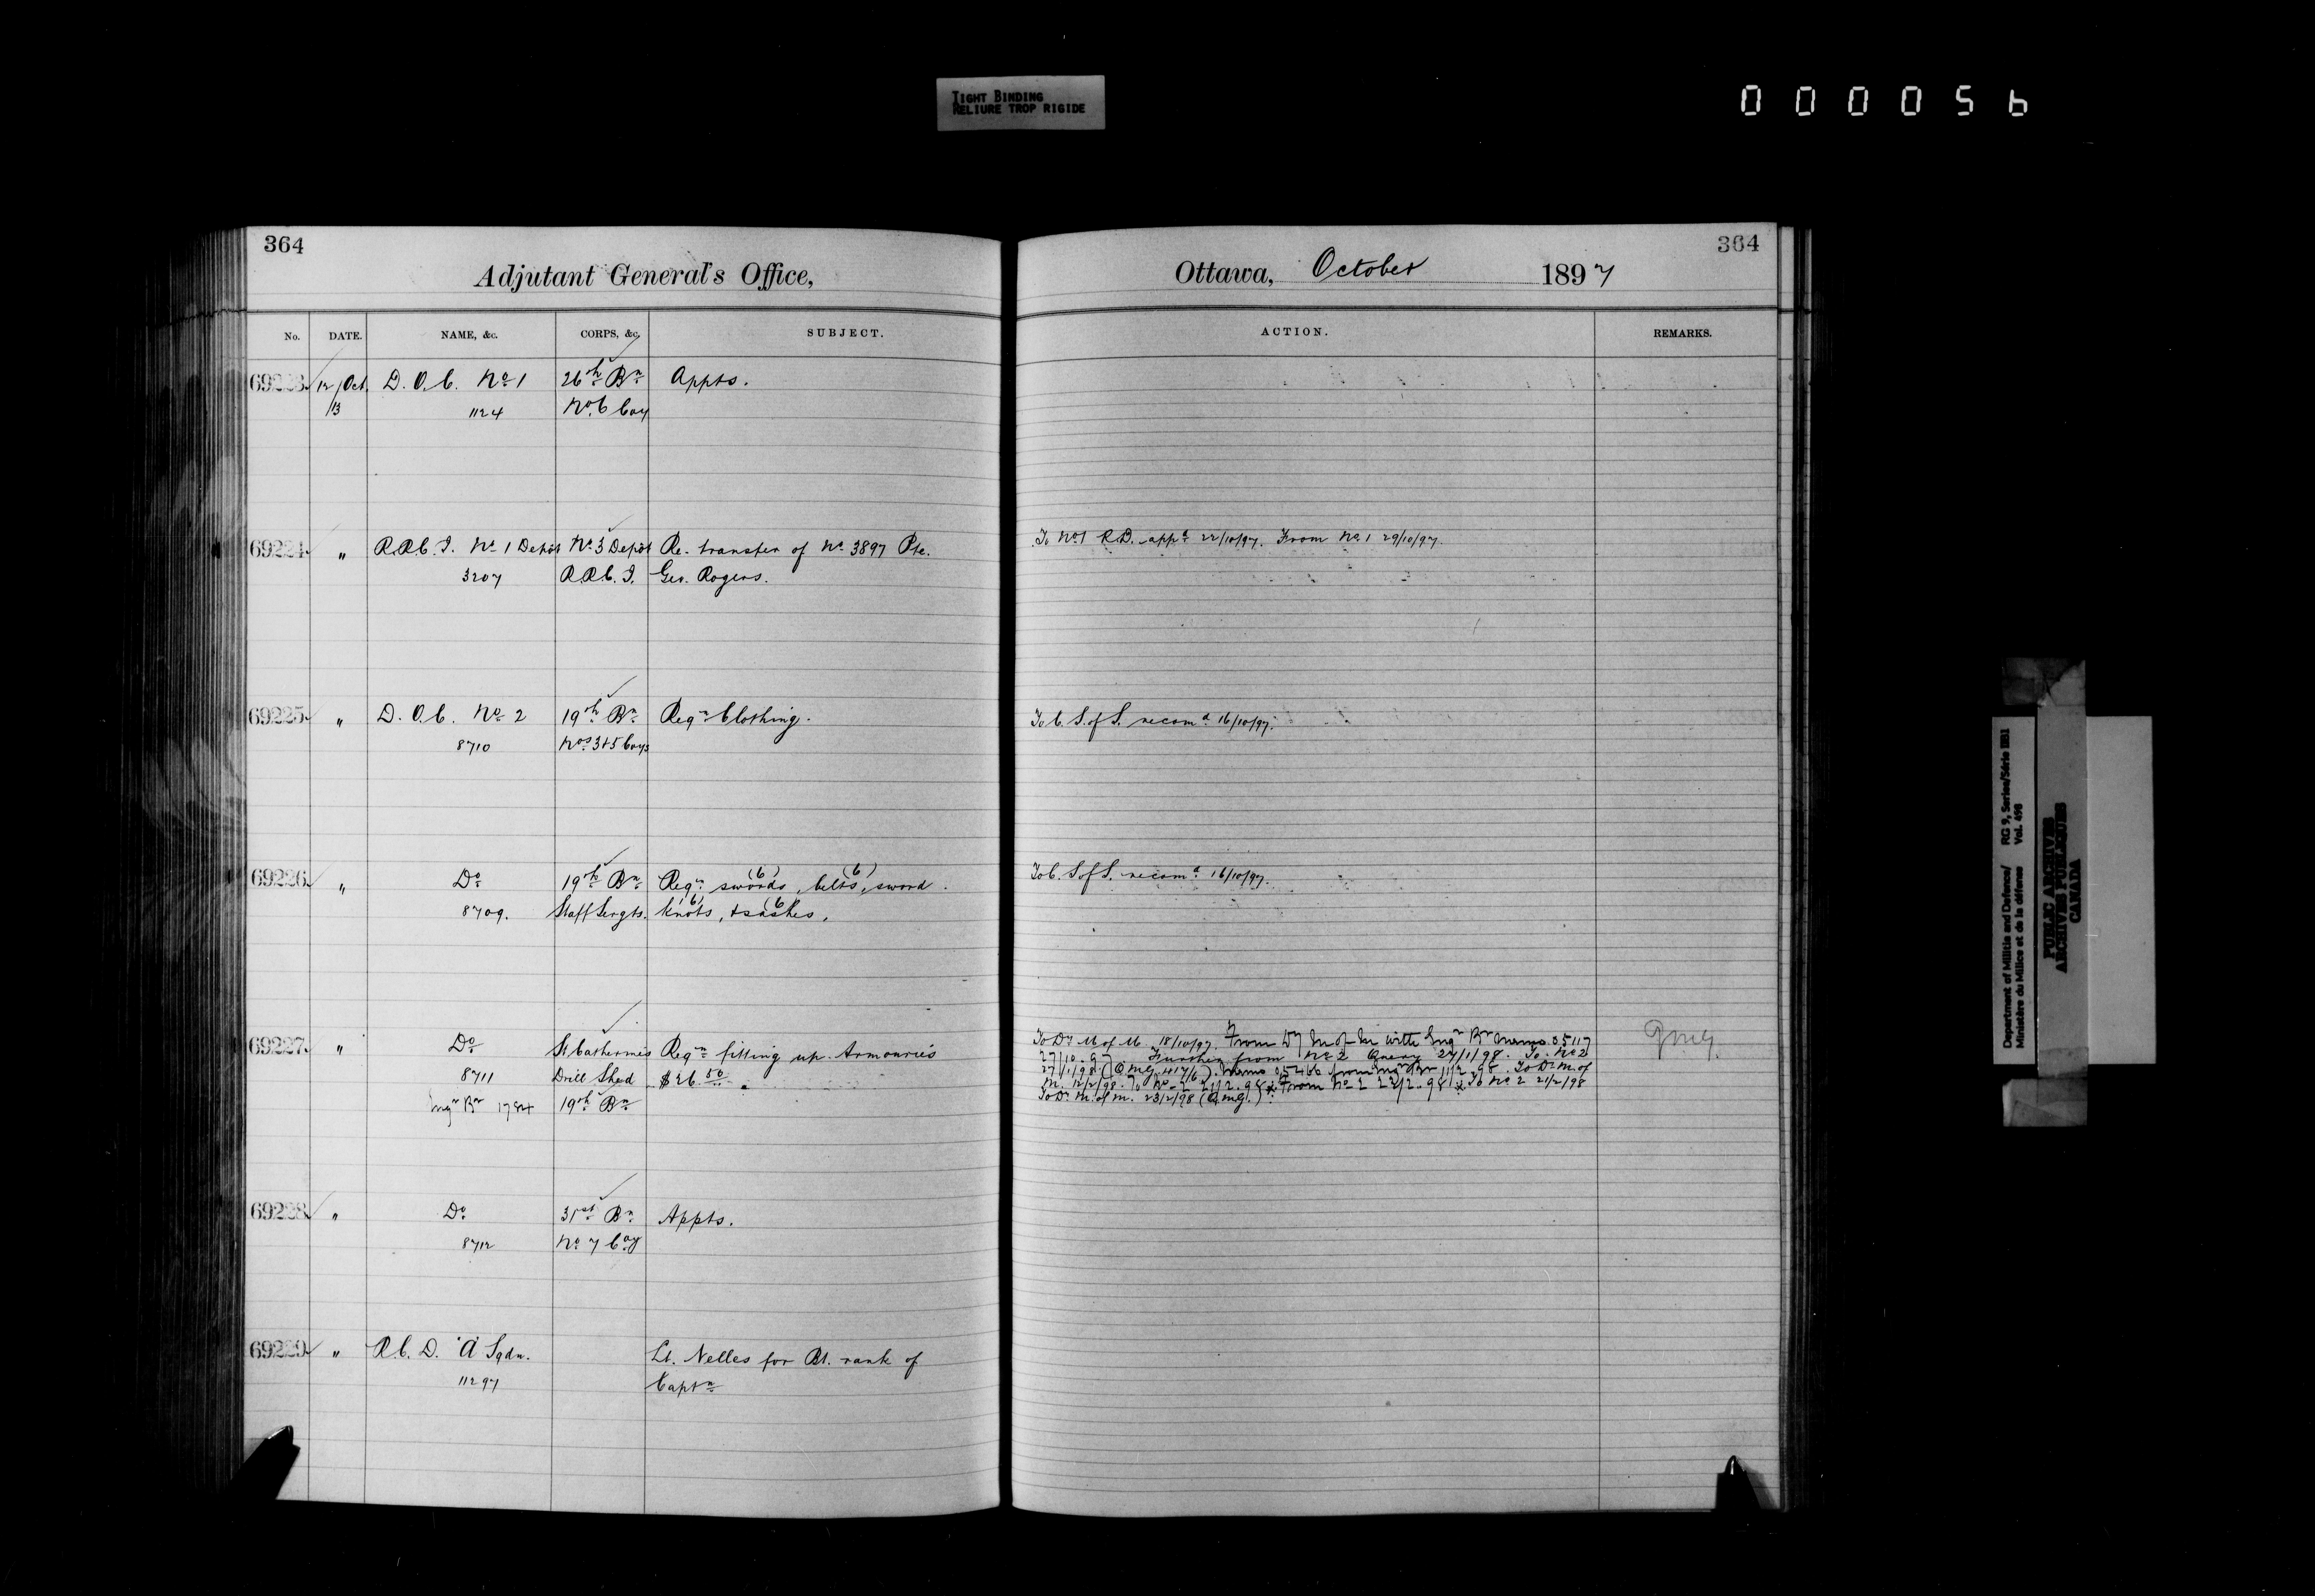 TIGHT BINDING
RELIURE TROP RIGIDE
000056
364
Adjutant General's Office,
No. DATE. NAME, &c. CORPS, &c. SUBJECT.
69223 12/Oct. D.O.C. No 1 26th Bn Appts.
/13 1124 No. 6 Coy
69224 " R.R.C.I. No 1 Depôt No 3 Depôt Re. transfer of No 3897 Pte.
3207 R.R.C.I. Geo. Rogers.
69225 " D.O.C. No 2 19th Bn Reqn Clothing.
8710 Nos 3+5 Coys
69226 " Do 19th Bn Reqn swords (6), belts (6), sword
8709. Staff Sergts. knots (6), + sashes (6),
69227 " Do St Catherines Reqn fitting up Armouries
8711 Drill Shed $26.50
Engr Br 1784 19th Bn
69228 " Do 31st Bn Appts.
8712 No 7 Coy
69229 " R.C.D. "A" Sqdn. Lt. Nelles for Bt. rank of
11297 Captn
364
Ottawa, October 1897
ACTION. REMARKS.
To No 1 R.D. appd 22/10/97. From No 1 29/10/97.
To C. S. of S. recomd 16/10/97.
To C. S. of S. recomd 16/10/97.
To Dr M of M. 18/10/97. From Dy M of M with Engr Br Memo 35117
27/10.97. Further from No 2 Query 27/1/98. To No 2
27/1/98 (QMG from Engr Br 11/2.98. To Dr M. of
M. 12/2/98. To No 2 21/2.98 * From No 2 22/2.98 * To No 2 21/2/98
To Dr M. of M. 23/2/98 (QMG.)
QMG.
Department of Militia and Defence/ RG 9, Series/Série IIB1
Ministère du Milice et de la défense Vol. 498
PUBLIC ARCHIVES
ARCHIVES PUBLIQUES
CANADA